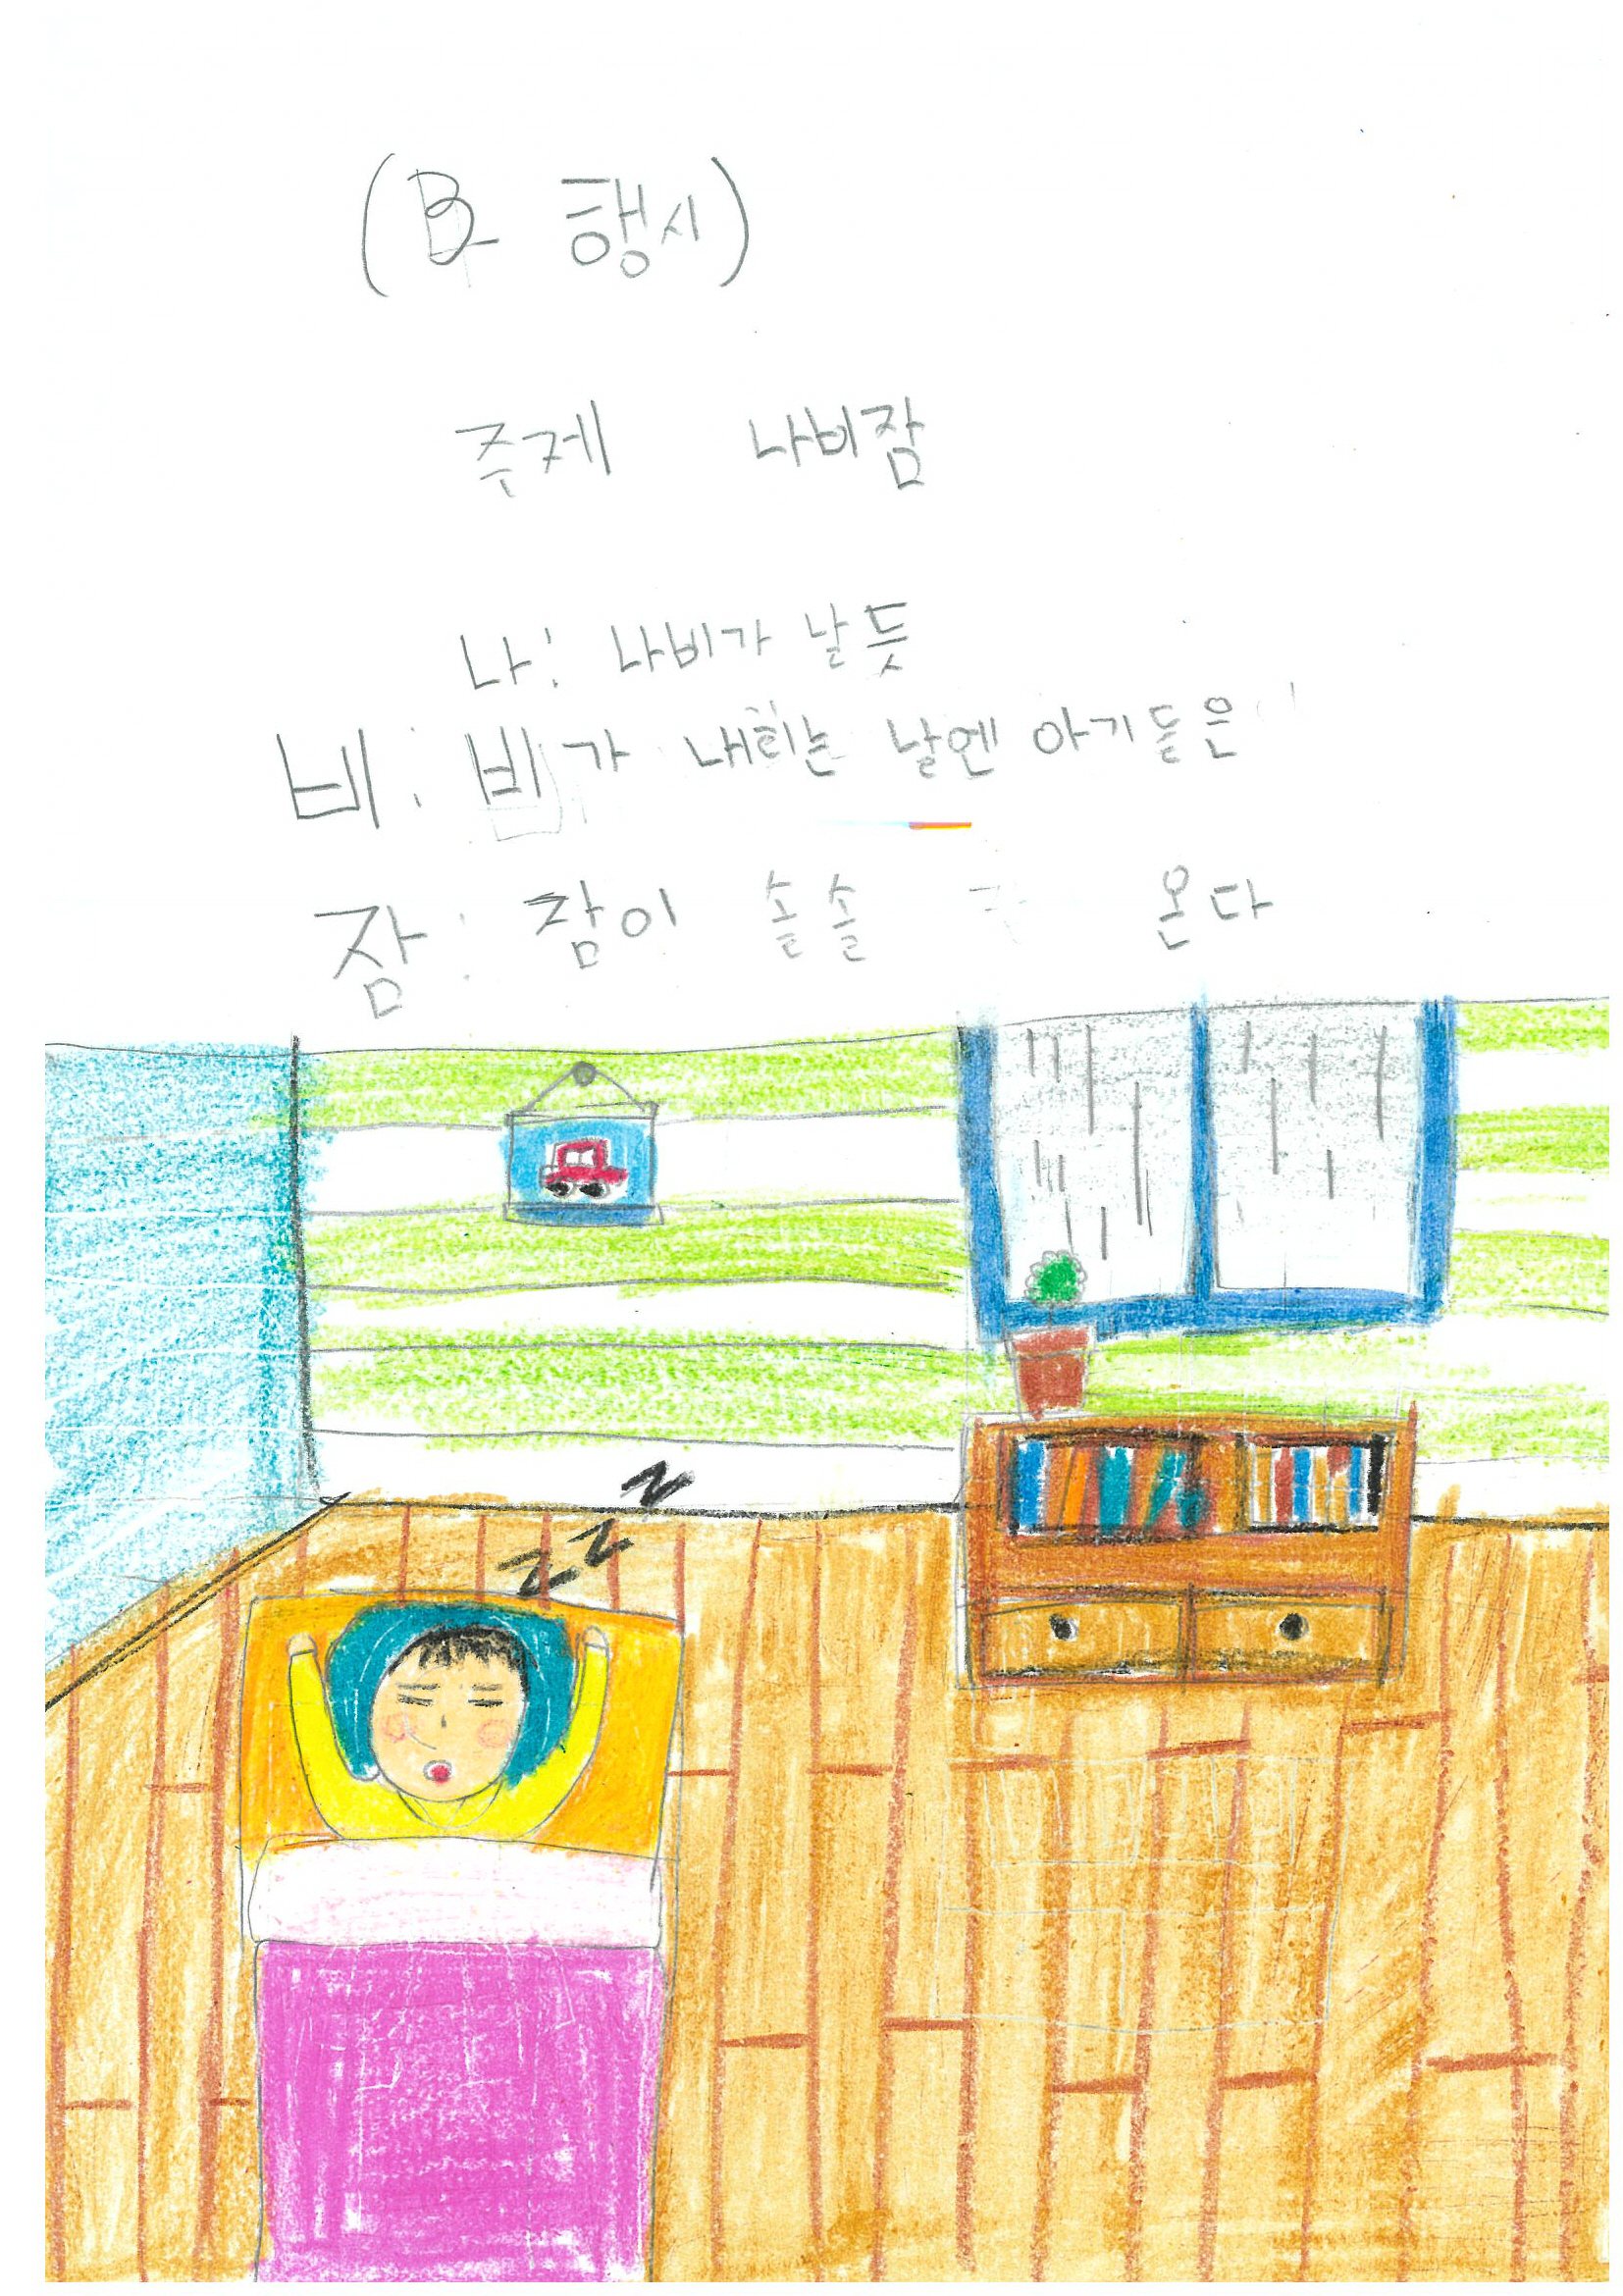 (3 행시)
주제 나비잠
나: 나비가 날듯
비: 비가 내리는 날엔 아기들은
잠: 잠이 솔솔 온다
zzz